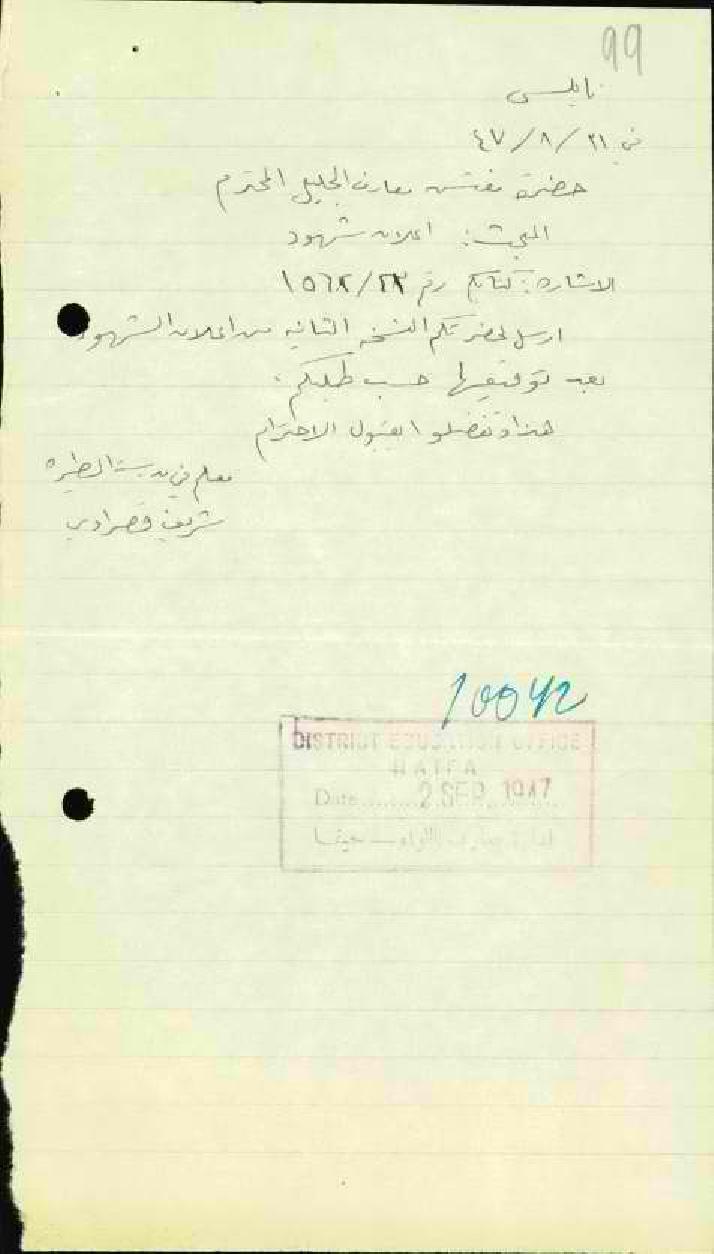 99
نابلس
في ٢١/٨/٤٧
حضرة مفتش معارف الجليل المحترم
المبحث: اعلان شهود
الاشارة: كتابكم رقم ١٥٦٢/٢٣
ارسل لحضرتكم النسخه الثانيه من اعلان الشهود
بعد توقيعها حسب طلبكم.
هذا وتفضلوا بقبول الاحترام
معلم في مدرسة الطيره
شريف
10042
DISTRICT EDUCATION OFFICE
HAIFA
Date 2 SEP 1947
ادارة معارف اللواء – حيفا